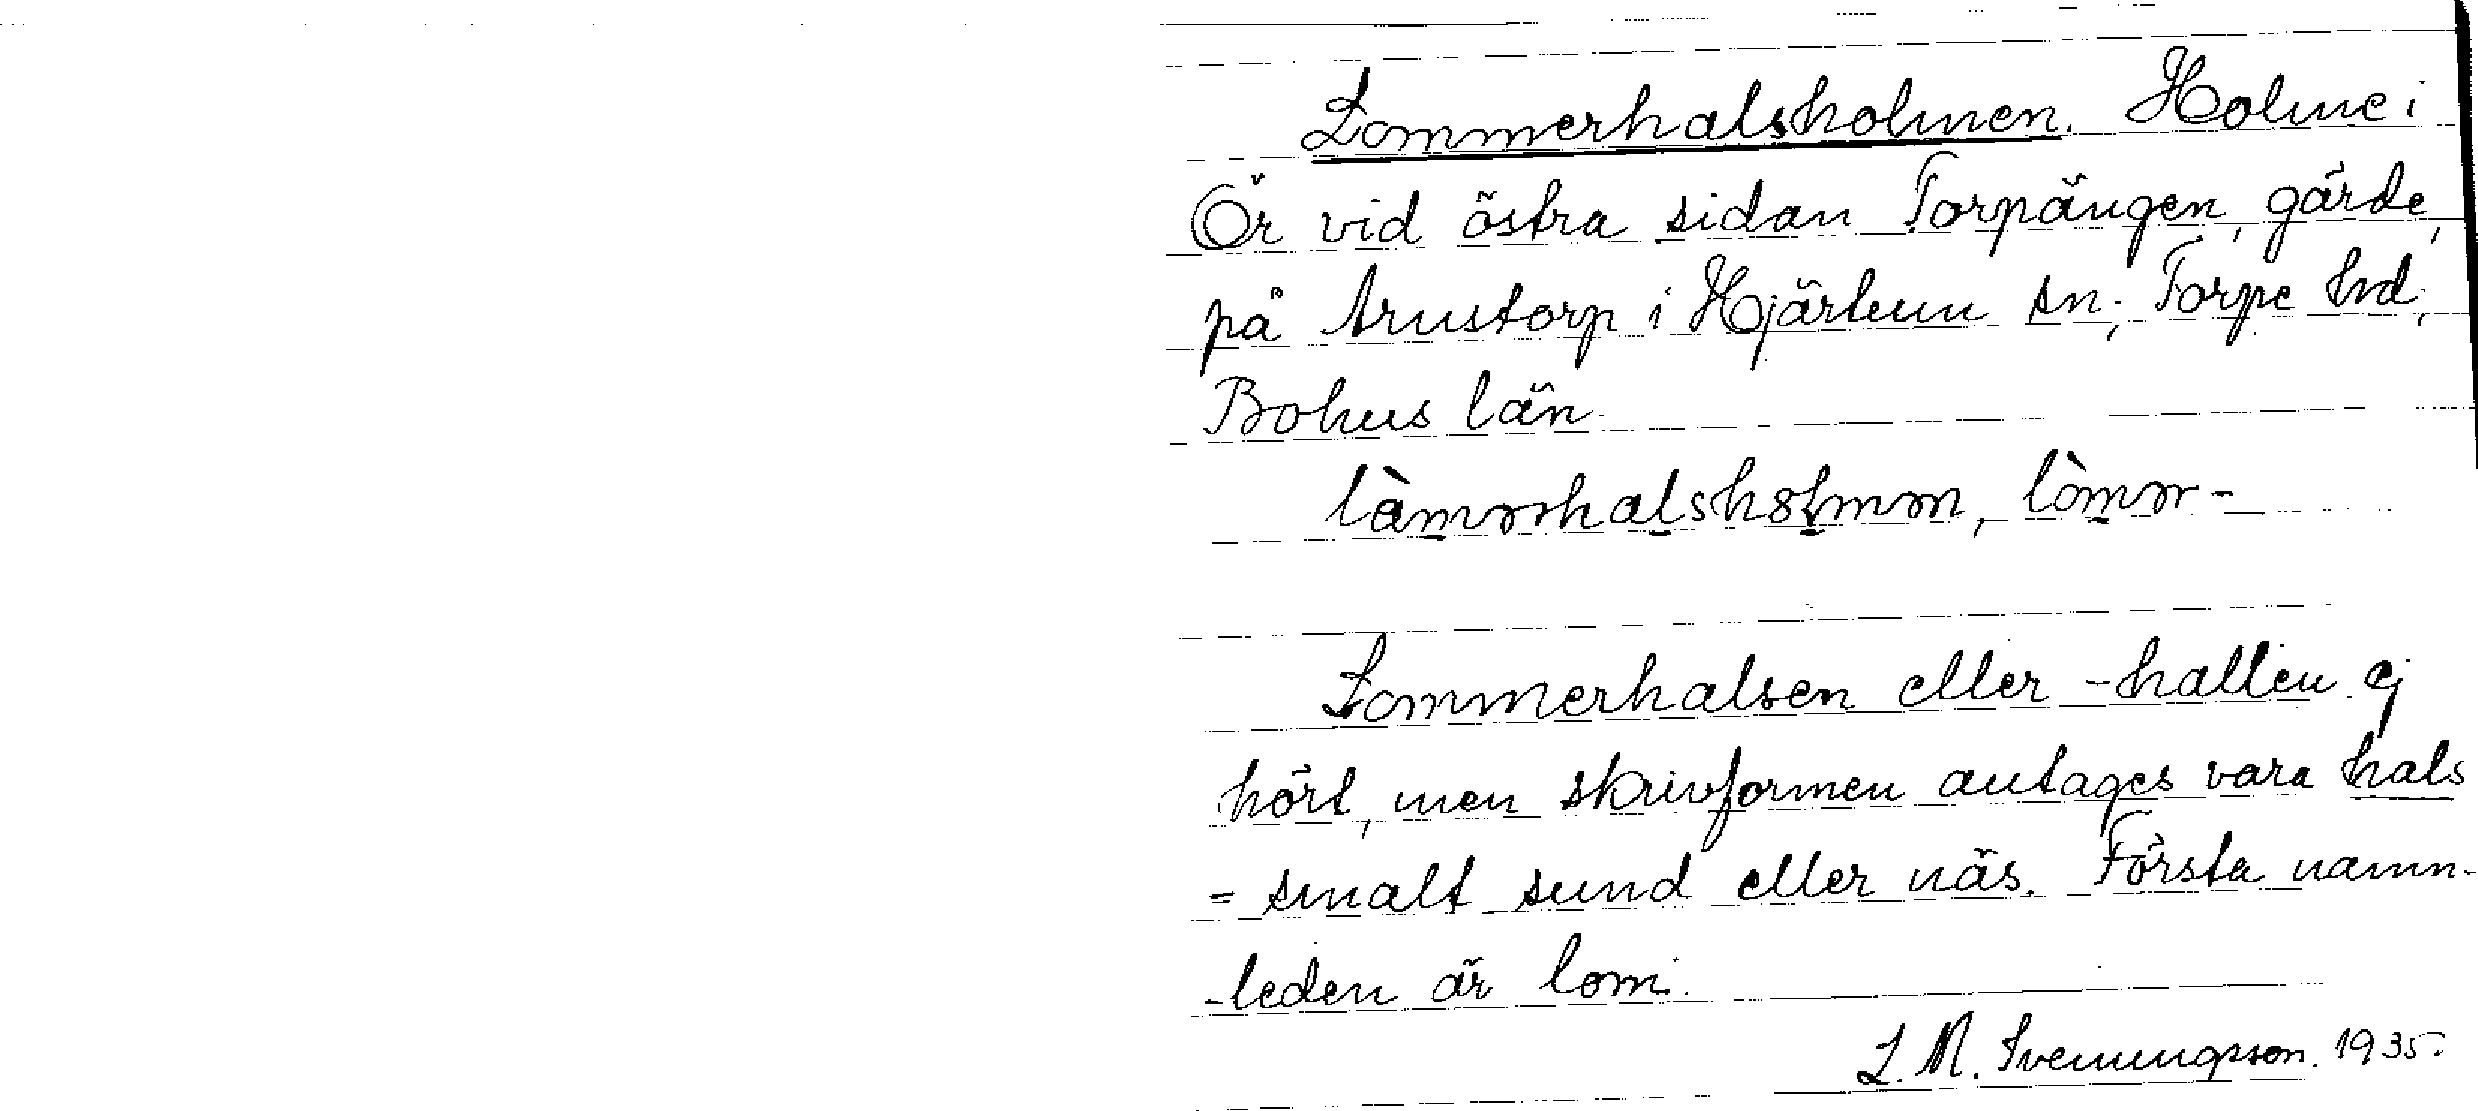 Lommerhalsholmen. Holme i
Ör vid östra sidan Torpängen, gärde,
på Arustorp i Hjärtum sn; Torpe hd,
Bohus län
làmərhalshɵlmən, lòmər-
Lommerhalsen eller -hallen ej
hört, men skrivformen antages vara hals
= smalt sund eller näs. Första namn-
-leden är lom.
L. M. Svenungsson. 1935.